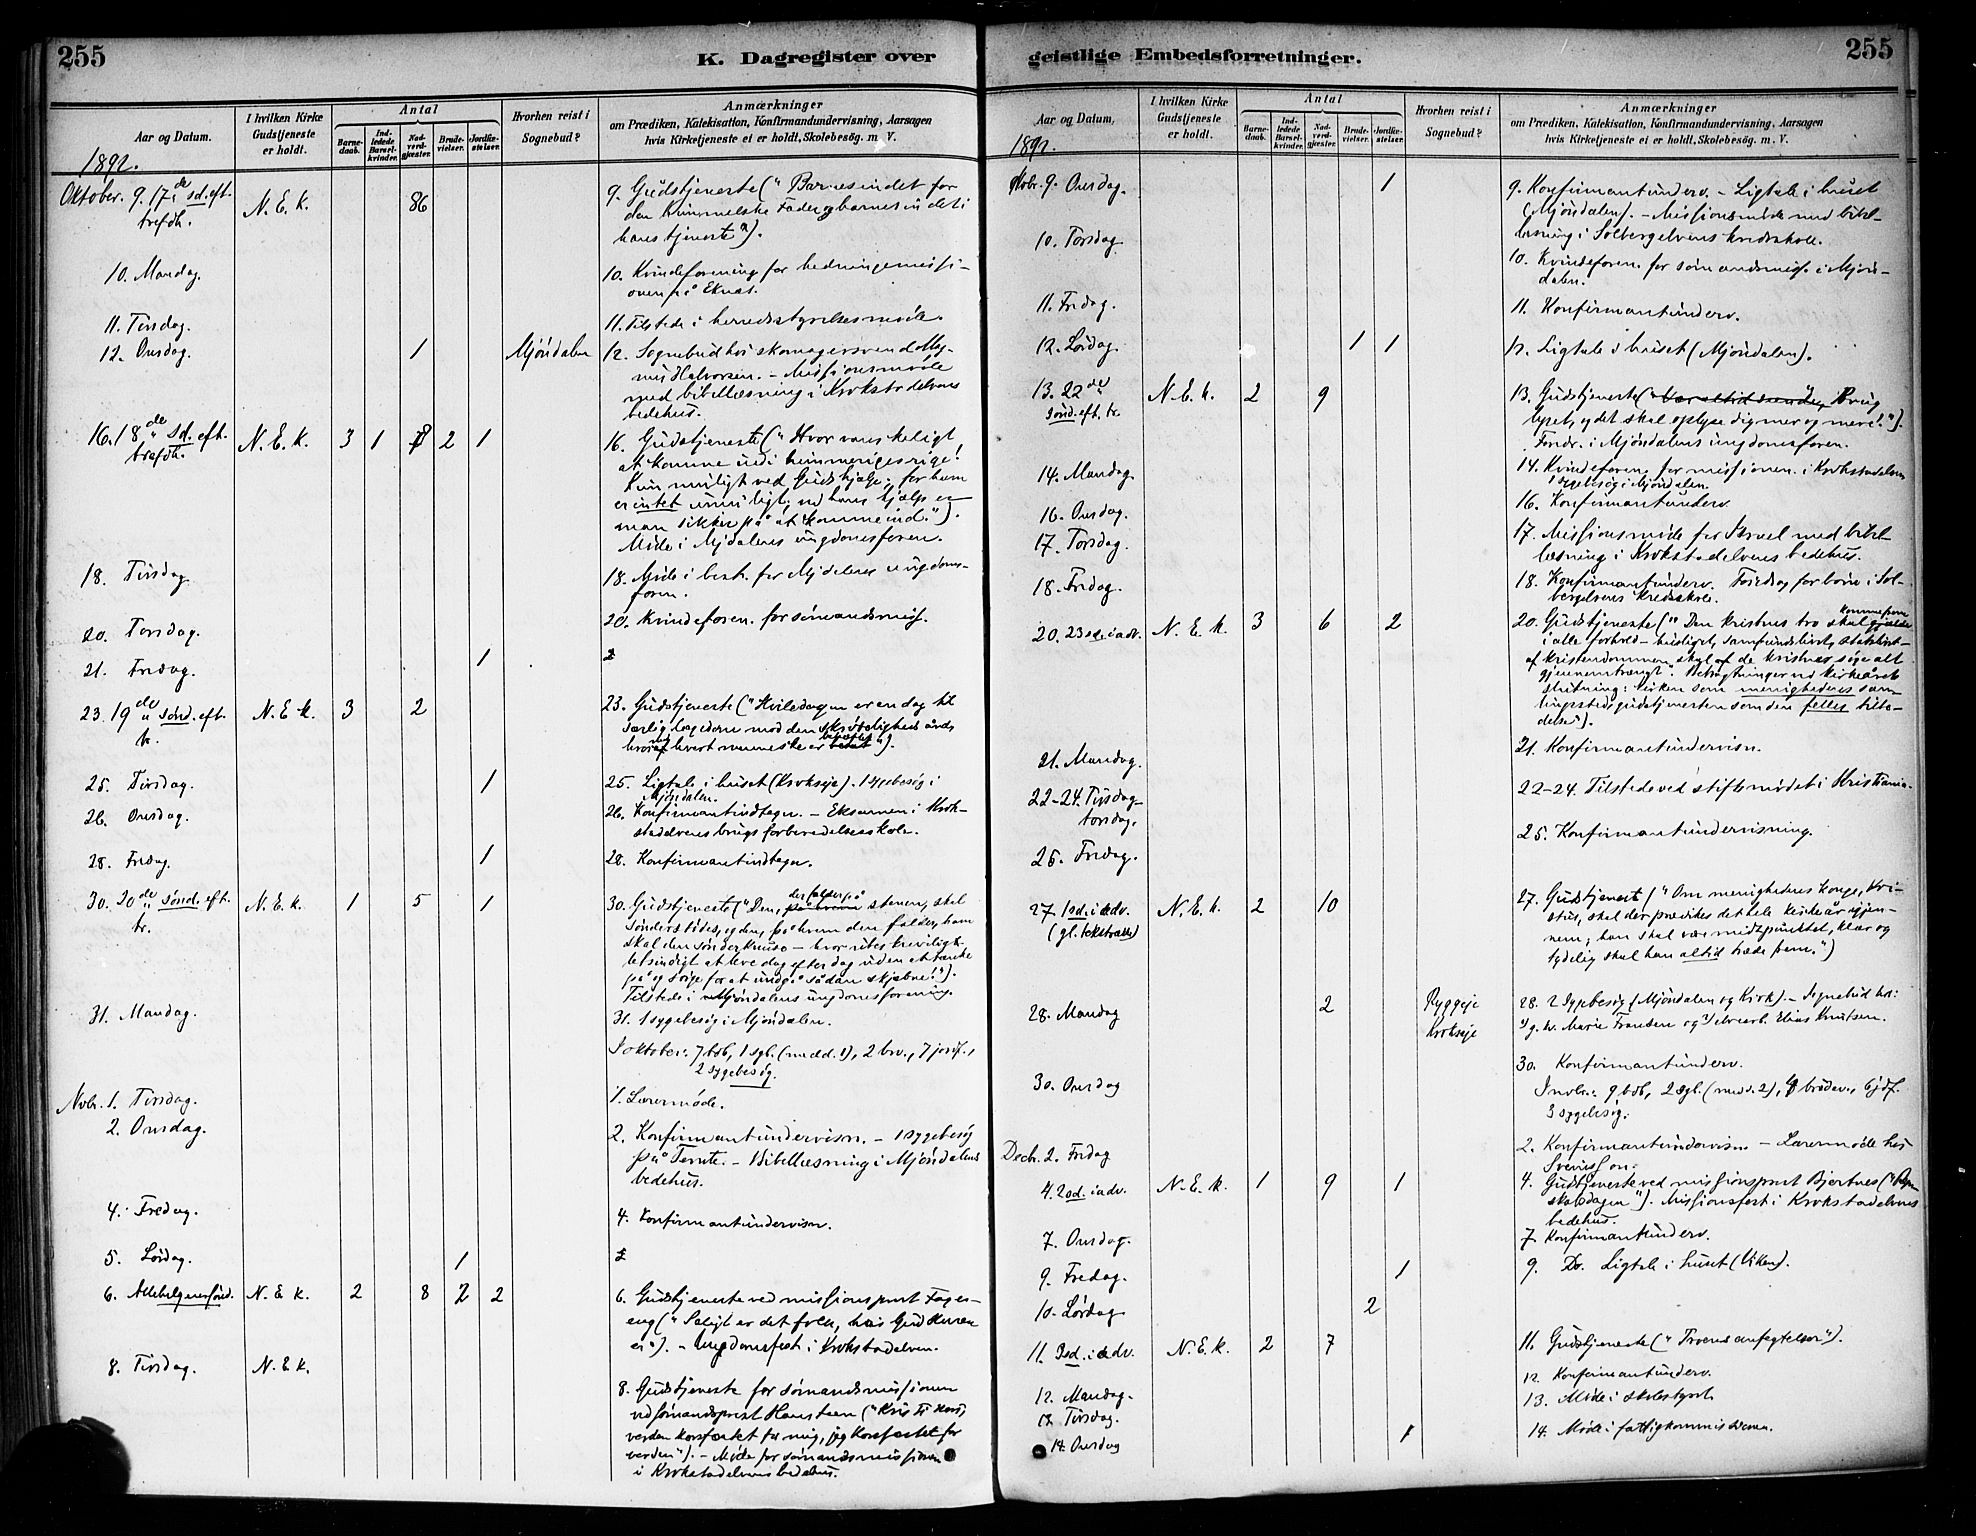 255
K. Dagregister over
Aar og Datum.
I hvilken Kirke
Gudstjeneste
er holdt.
Antal
Barne-
daab.
Ind-
ledede
Barsel-
kvinder.
Nad-
verd-
gjæster.
Brude-
vielser.
Jordfæ-
stelser.
Hvorhen reist i
Sognebud?
Anmærkninger
om Prædiken, Katekisation, Konfirmandundervisning, Aarsagen
hvis Kirketjeneste ei er holdt, Skolebesøg. m. V.
1892.
Oktober. 9. 17de sd. eft.
trefdh.
N. E. K.
86
9. Gudstjeneste ("Barnesindet for
den himmelske Fader og barnesindet i
hans tjeneste").
10. Mandag.
10. Kvindeforening for hedningemissi-
onen på Eknes.
11. Tirsdag.
11. Tilstede i herredsstyrelsesmøde.
12. Onsdag.
1
Mjöndalen
12. Sognebud hos skomagersvend Mag-
nus Halvorsen. - Missionsmøde
med bibellæsning i Krokstadelvens
bedehus.
16. 18de sd. eft.
trefdh.
N. E. K. 3 1 8 2 1
16. Gudstjeneste ("Hvor vanskeligt
at komme ind i himmeriges rige!
Kun muligt ved Guds hjælp; for ham
er intet umuligt, ved hans hjælp er
man sikker på at komme ind.").
Møde i Mjdalens ungdomsforen.
18. Tirsdag
18. Møde i best. for Mjdalens ungdoms-
foren.
20. Torsdag.
20. Kvindeforen. for sømandsmiss.
21. Fredag.
1
23. 19de sønd. eft.
tr.
N. E. K. 3 2
23. Gudstjeneste ("Hviledagen er en dag til
særlig lægedom mod den skrøbelighedsånd,
hvormed hvert menneske er ").
25. Tirsdag.
1
25. Ligtale i huset (Krokseje). 1 sygebesøg i
Mjöndalen.
26. Onsdag.
26. Konfirmantindtegn. - Eksamen i Krok-
stadelvens brugs forberedelsesskole.
28. Fredag.
1
28. Konfirmantindtegn.
30. 20de sønd. eft.
tr.
N. E. K. 1 5 1
30. Gudstjeneste ("Den, der falder på stenen, skal
sønderstødes, og den, på hvem den falder, ham
skal den sønderknuse - hvor uteskrivligt
letsindigt at leve dag efter dag uden at tænke
på og sørge for at undgå sådan skjæbne!").
Tilstede i Mjöndalens ungdomsforening.
31. Mandag.
31. 1 sygebesøg i Mjöndalen.
I oktober: 7 bdb, 1 sgb. (medd. 1), 2 brv., 7 jordf.,
2 sygebesøg.
Novbr. 1. Tirsdag.
1. Lærermøde.
2. Onsdag.
2. Konfirmantundervisn. - 1 sygebesög
på Temte. - Bibellæsning i Mjöndalens
bedehus.
4. Fredag.
4. Konfirmantundervisn.
5. Lørdag.
1
6. Allehelgenssønd. N. E. K. 2 8 2 2
6. Gudstjeneste ved missionsprest Fager-
eng ("Saligt er det folk, hvis Gud Herren
er"). - Ungdomsfest i Krokstadelven.
8. Tirsdag. N. E. K.
8. Gudstjeneste for sømandsmissionen
ved sömandsprest Hansteen ("Kristi kors,
verden korsfæstet for mig, jeg korsfæstet for
verden"). - Møde for sømandsmissionen
i Krokstadelvens bedehus.
geistlige Embedsforretninger.
255
Aar og Datum.
I hvilken Kirke
Gudstjeneste
er holdt.
Antal
Barne-
daab.
Ind-
ledede
Barsel-
kvinder.
Nad-
verd-
gjæster.
Brude-
vielser.
Jordfæ-
stelser.
Hvorhen reist i
Sognebud?
Anmærkninger
om Prædiken, Katekisation, Konfirmandundervisning, Aarsagen
hvis Kirketjeneste ei er holdt, Skolebesøg. m. V.
1892.
Novbr. 9. Onsdag.
1
9. Konfirmantunderv. - Ligtale i huset
(Mjöndalen). - Missionsmøde med bibel-
læsning i Solbergelvens kredsskole.
10. Torsdag
10. Kvindeforen. for sømandsmiss. i Mjön-
dalen.
11. Fredag.
11. Konfirmantunderv.
12. Lørdag.
1 1
12. Ligtale i huset (Mjöndalen).
13. 22de
sönd. eft. tr.
N. E. K. 2 9
13. Gudstjeneste (" Brug
lyset, og det skal oplyse dig mer og mere!").
Foredr. i Mjöndalens ungdomsforen.
14. Mandag.
14. Kvindeforen. for missionen i Krokstadelven
1 sygebesög i Mjöndalen.
16. Onsdag.
16. Konfirmantunderv.
17. Torsdag.
17. Missionsmøde for Israel med bibel-
læsning i Krokstadelvens bedehus.
18. Fredag.
18. Konfirmantunderv. Foredrag for börn i Sol-
bergelvens kredsskole.
20. 23 sde i adv. N. E. K. 3 6 2
20. Gudstjeneste ("Den kristnes tro skal komme frem
i alle forhold - huslivet, samfundslivet, statslivet -
af kristendommen skal af de kristnes søge alt
gjennemtrængt". Betragtninger ved kirkeårets
slutning: kirken som menighedens sam-
lingssted, gudstjenesten som den fælles tilbe-
delse").
21. Mandag.
21. Konfirmantundervisn.
22-24. Tirsdag-
torsdag.
22-24. Tilstede ved stiftsmødet i Kristiania.
25. Fredag.
25. Konfirmantundervisning.
27. 1 sd. i adv.
(gl. tekstrække)
N. E. K. 2 10
27. Gudstjenest ("Om menighedens konge, Kri-
stus, skal der prædikes det hele kirkeår igjen-
nem; han skal være midtpunktet, klar og
tydelig skal han altid træde frem.")
28. Mandag
2
Ryggeje
Krokseje
28. 2 sygebesög (Mjöndalen og Kirk). - Sognebud hos:
g. kv. Marie Fransen og elvearb. Elias Knutsen.
30. Onsdag
30. Konfirmantunderv.
I novbr.: 9 bdb, 2 sgb. (medd. 2), 4 brudev., 6 jdf.
3 sygebesög.
Decbr. 2. Fredag
2. Konfirmantundervisn. - Lærermøde hos
Svenisson.
4. 2 sd. i adv. N. E. K. 1 9 1
4. Gudstjeneste ved missionsprest Bjertnes ("
"). Missionsfest i Krokstadelvens
bedehus.
7. Onsdag.
7. Konfirmantunderv.
9. Fredag.
1
9. Do. Ligtale i huset (Viken).
10. Lørdag
2
11. 3 sd. i adv. N. E. K. 2 7
11. Gudstjeneste ("Troens anfægtelser").
12. Mandag.
12. Konfirmantunderv.
13. Tirsdag.
13. Møde i skolestyret
14. Onsdag
1
14. Møde i fattigkommissionen.